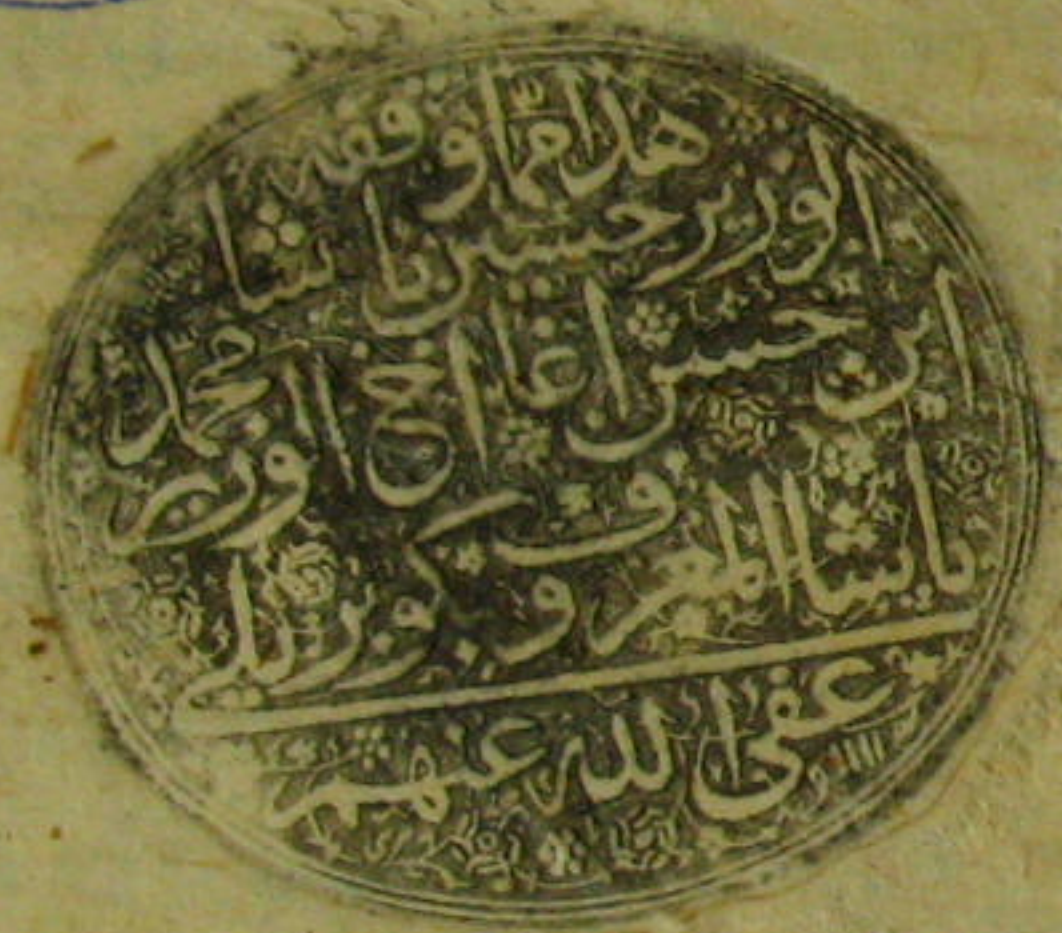 هذا مما وقفه
الوزير حسين باشا
ابن حسن اغا اخ الوزير محمد
باشا المعروف بكوپريلي
عفى الله عنهم
١١١١